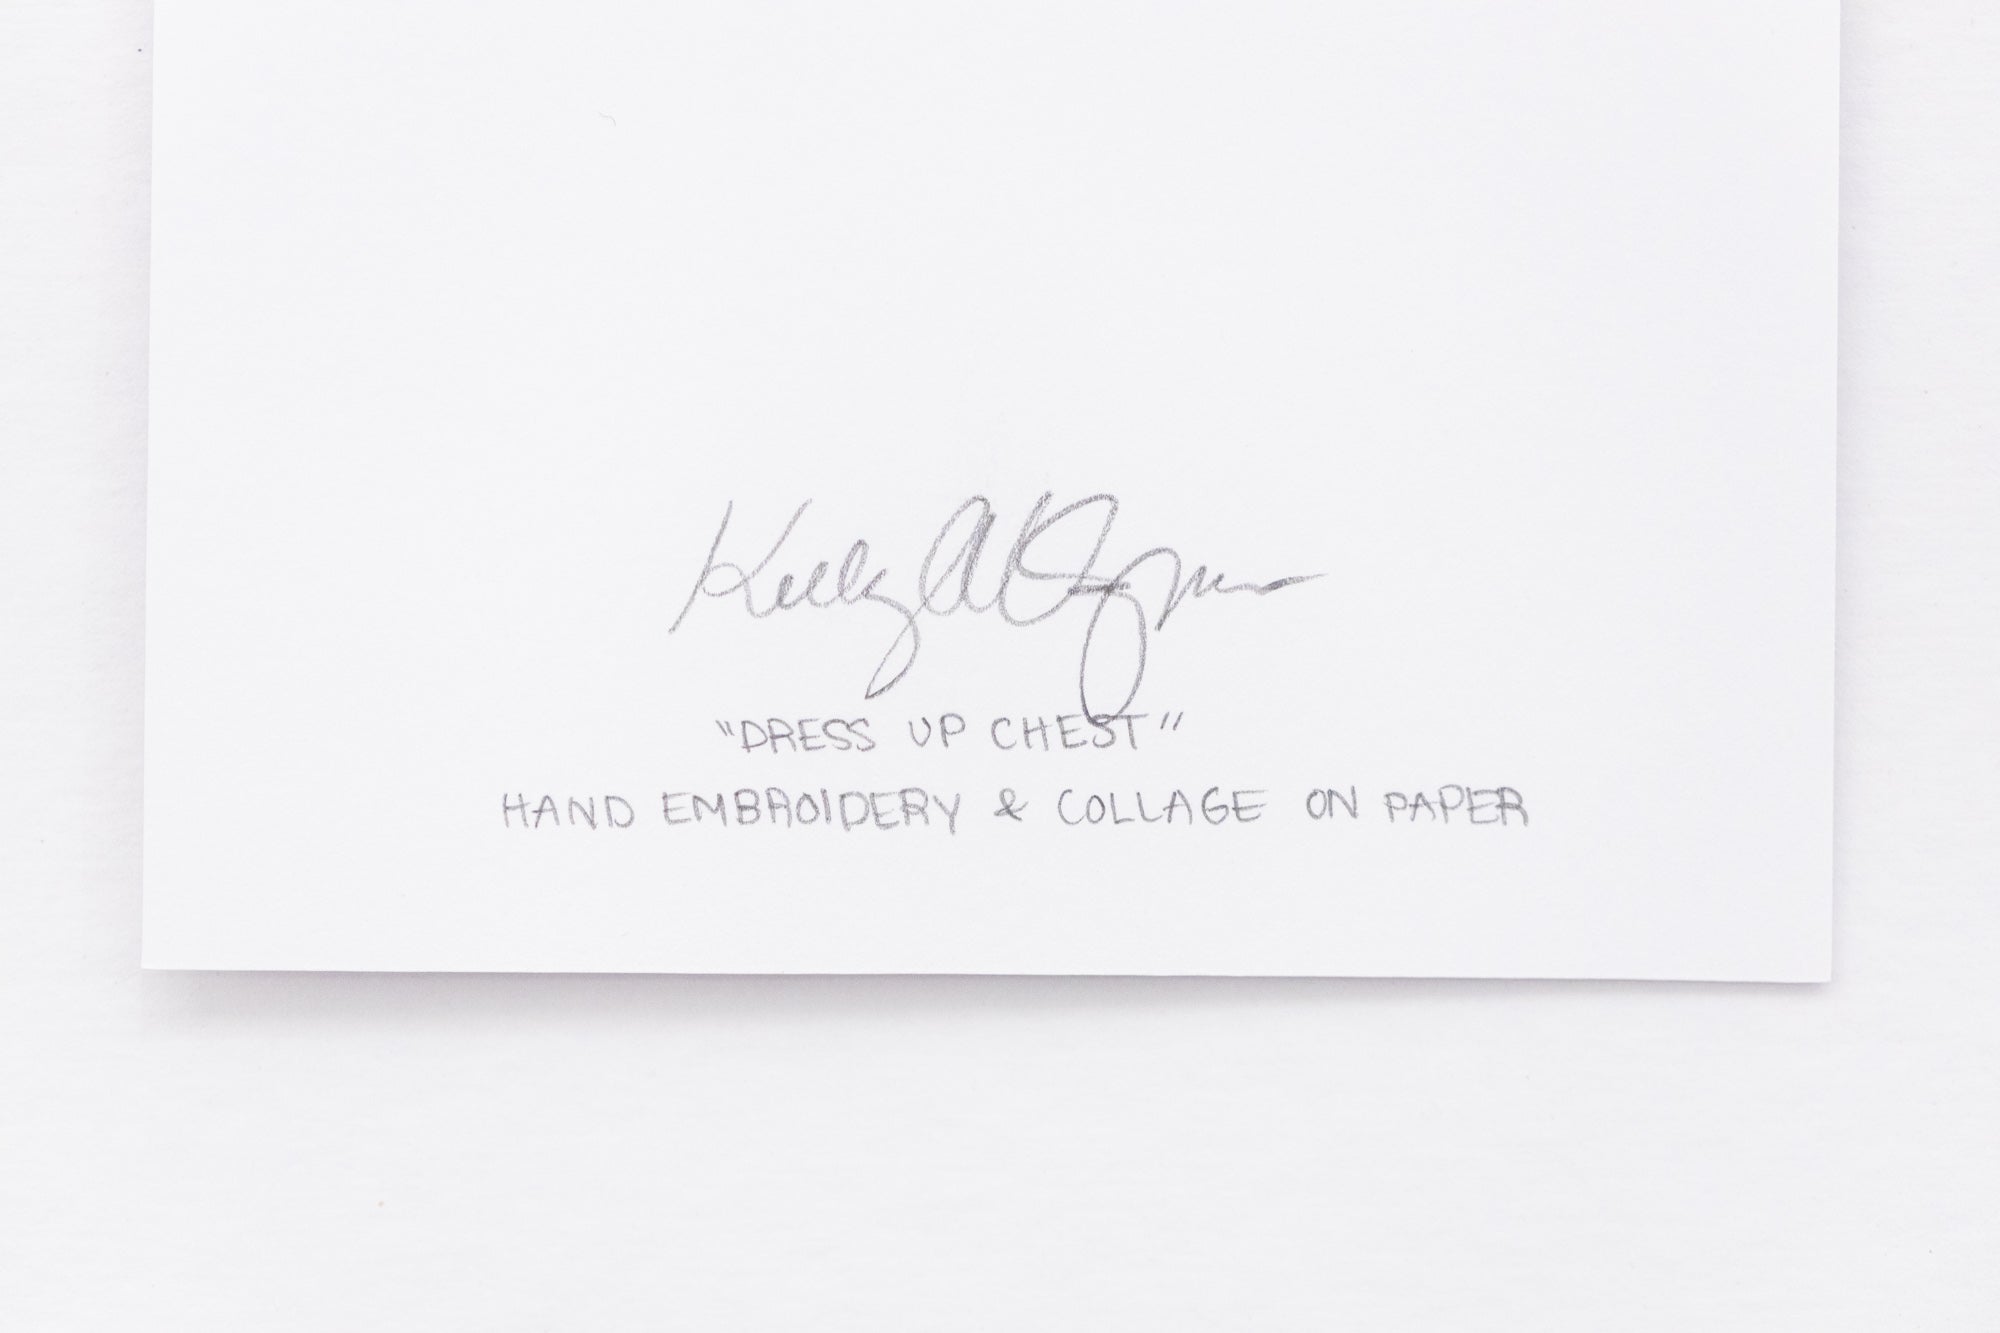 Kelly
"DRESS UP CHEST"
HAND EMBROIDERY & COLLAGE ON PAPER